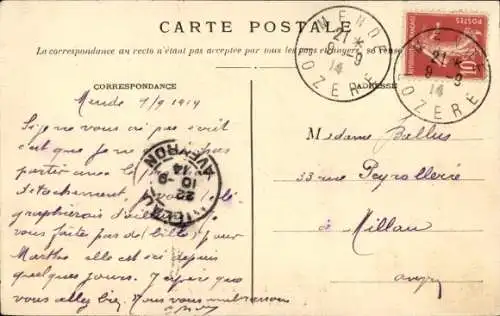 CARTE POSTALE
La correspondance au recto n'étant pas acceptée par tous les pays étrangers, se rense
CORRESPONDANCE
ADRESSE
MENDE
21
9-9
14
LOZERE
POSTES
10
MENDE
21
9-9
14
LOZERE
Mende 9/9 1914
Si je ne vous ai pas écrit
c'est que je ne pas
partir avec le
détachement, vous télé
graphierais d'ailleurs
vous faites pas de bile pour
Marthe elle est ici depuis
quelques jours. J'espère que
vous allez bien. Nous vous embrassons
MILLAU
22
10-9
14
AVEYRON
Madame Ballus
33 rue Peyrollerie
à Millau